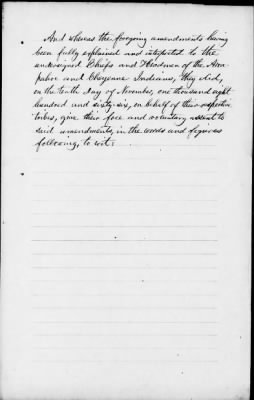 And whereas the foregoing amendments having
been fully explained and interpreted to the
undersigned Chiefs and Headmen of the Arra-
pahoe and Cheyenne Indians, they did,
on the tenth day of November, one thousand eight
hundred and sixty-six, on behalf of their respective
tribes, give their free and voluntary assent to
said amendments, in the words and figures
following, to wit: